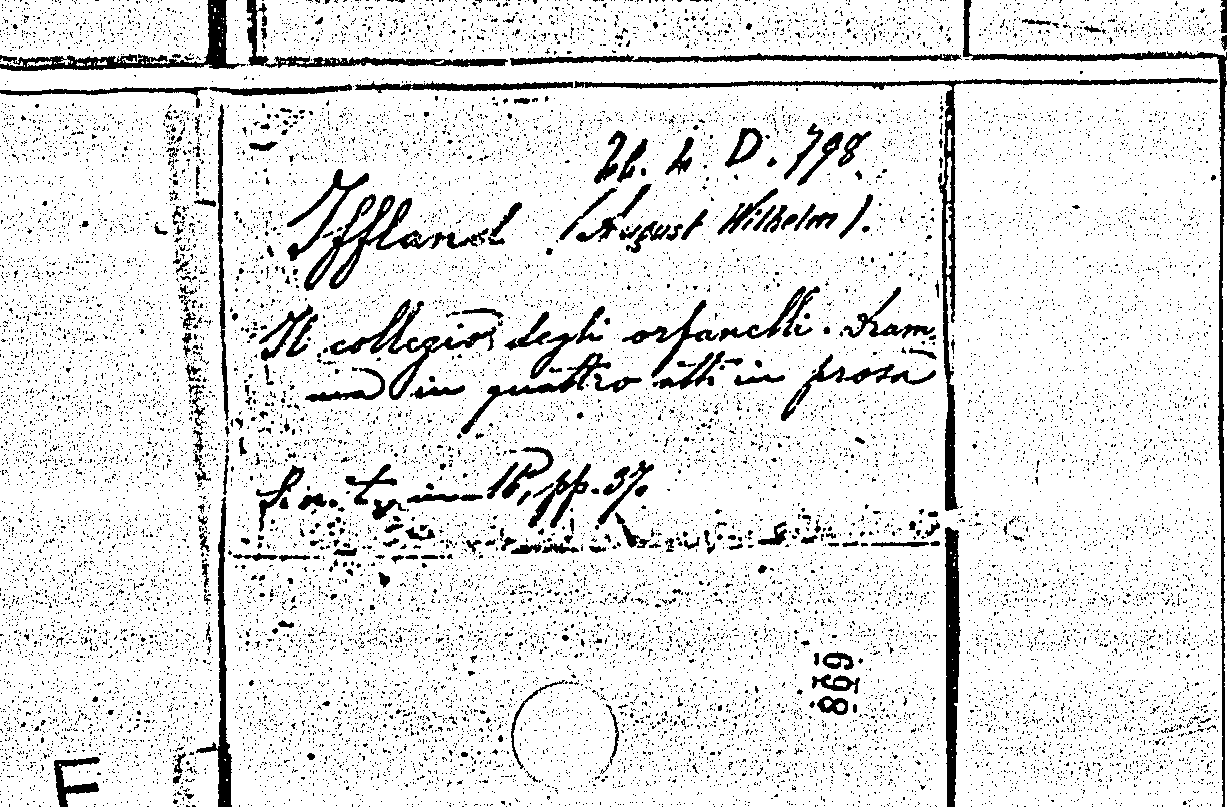 L. D. 798
Iffland (August Wilhelm).
Il collegio degli orfanelli. Dram
ma in quattro atti in prosa
S. n. t., in 16, pp. 37.
869
E